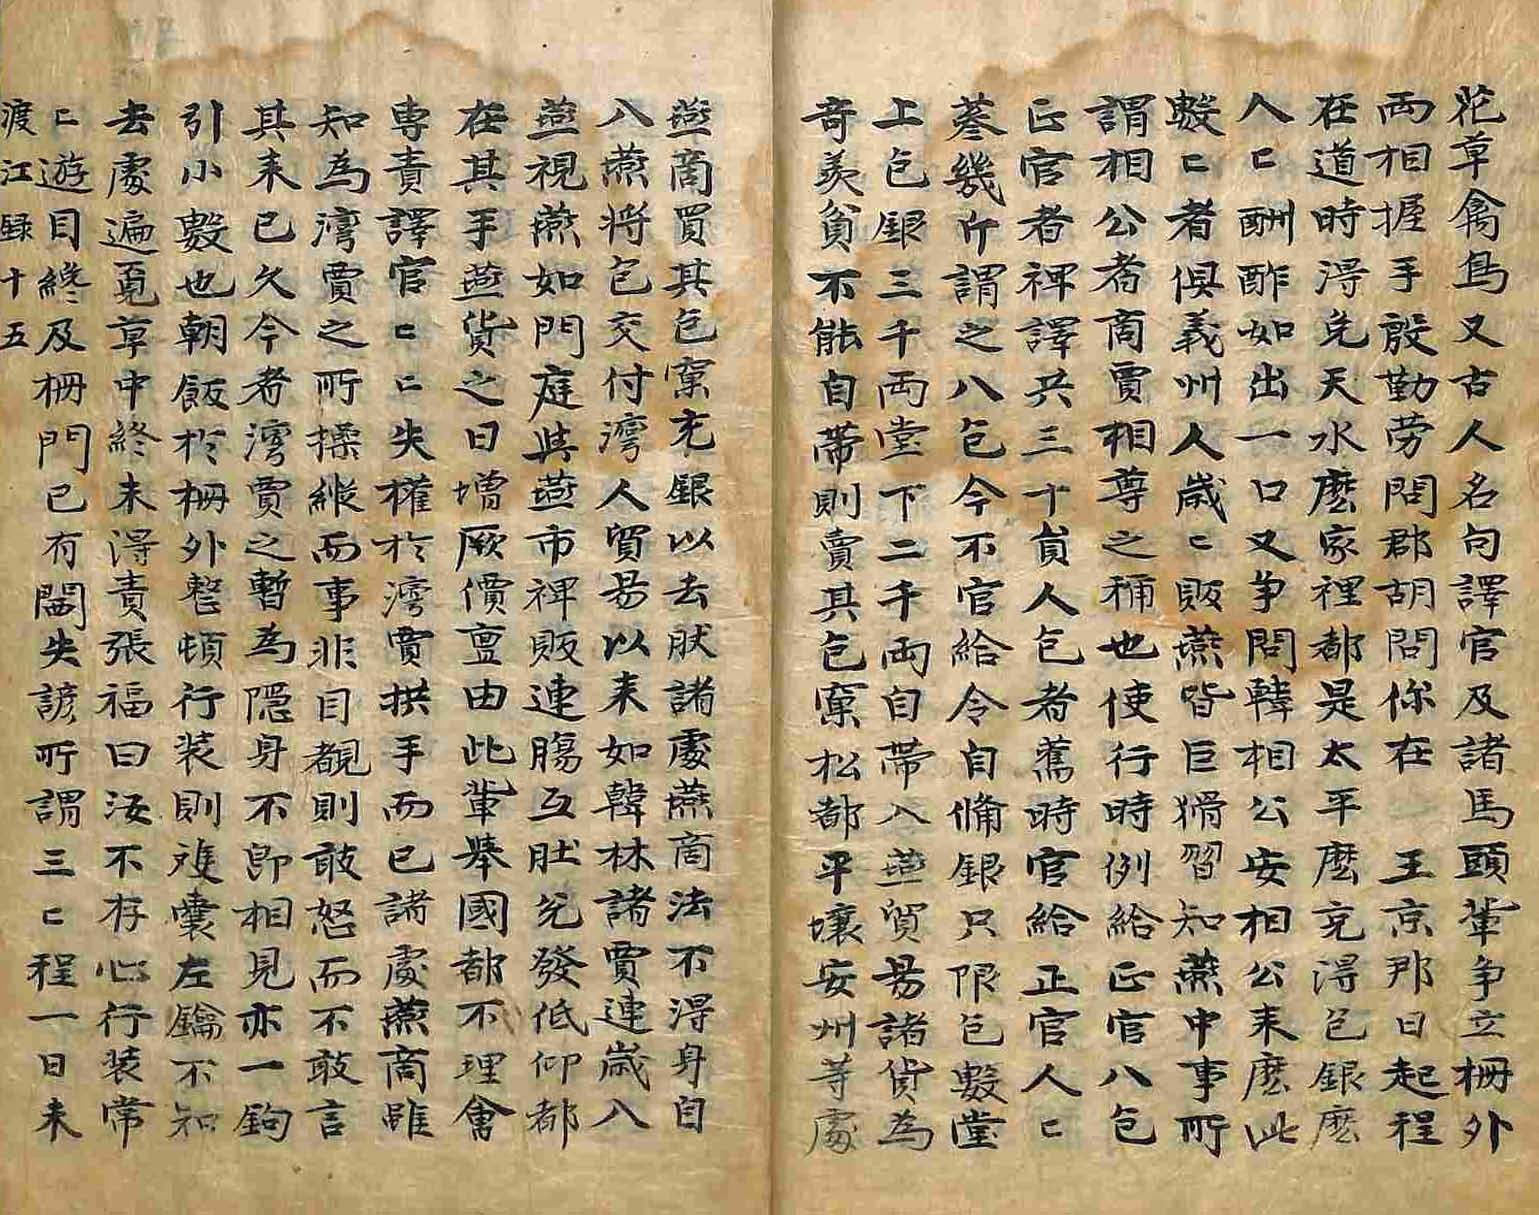 花草禽鳥又古人名句譯官及諸馬頭軰争立柵外
兩相握手殷勤劳問郡胡問你在 王京那日起程
在道時淂免天水麽家裡都是太平麽充淂包銀麽
人〻酬酢如出一口又争問韓相公安相公来麽此
數〻者俱義州人歲〻販燕皆巨猾習知燕中事所
謂相公者商賈相尊之稱也使行時例給正官八包
正官者裨譯共三十員人包者舊時官給正官人〻
蔘幾斤謂之八包今不官給令自俻銀只限包數堂
上包銀三千兩堂下二千兩自帶入燕貿易諸貨為
竒羨貧不能自帶則賣其包窠松都平壤安州等處
燕商買其包窠充銀以去肰諸處燕商法不淂身自
入燕将包交付湾人貿易以来如韓林諸賈連歲入
燕視燕如門庭與燕市裨販連膓互肚兊發低仰都
在其手燕貨之日增厥價亶由此軰舉國都不理會
専責譯官〻〻失權扵湾賈拱手而已諸處燕商雖
知為湾賈之所操縱而事非目覩則敢怒而不敢言
其来已久今者湾賈之暫為隠身不即相見亦一鉤
引小數也朝飯扵柵外整頓行装則䨇囊左鑰不知
去處遍覓草中終未淂責張福曰汝不存心行装常
〻遊目纔及柵門已有閪失諺所謂三〻程一日未
渡江録十五